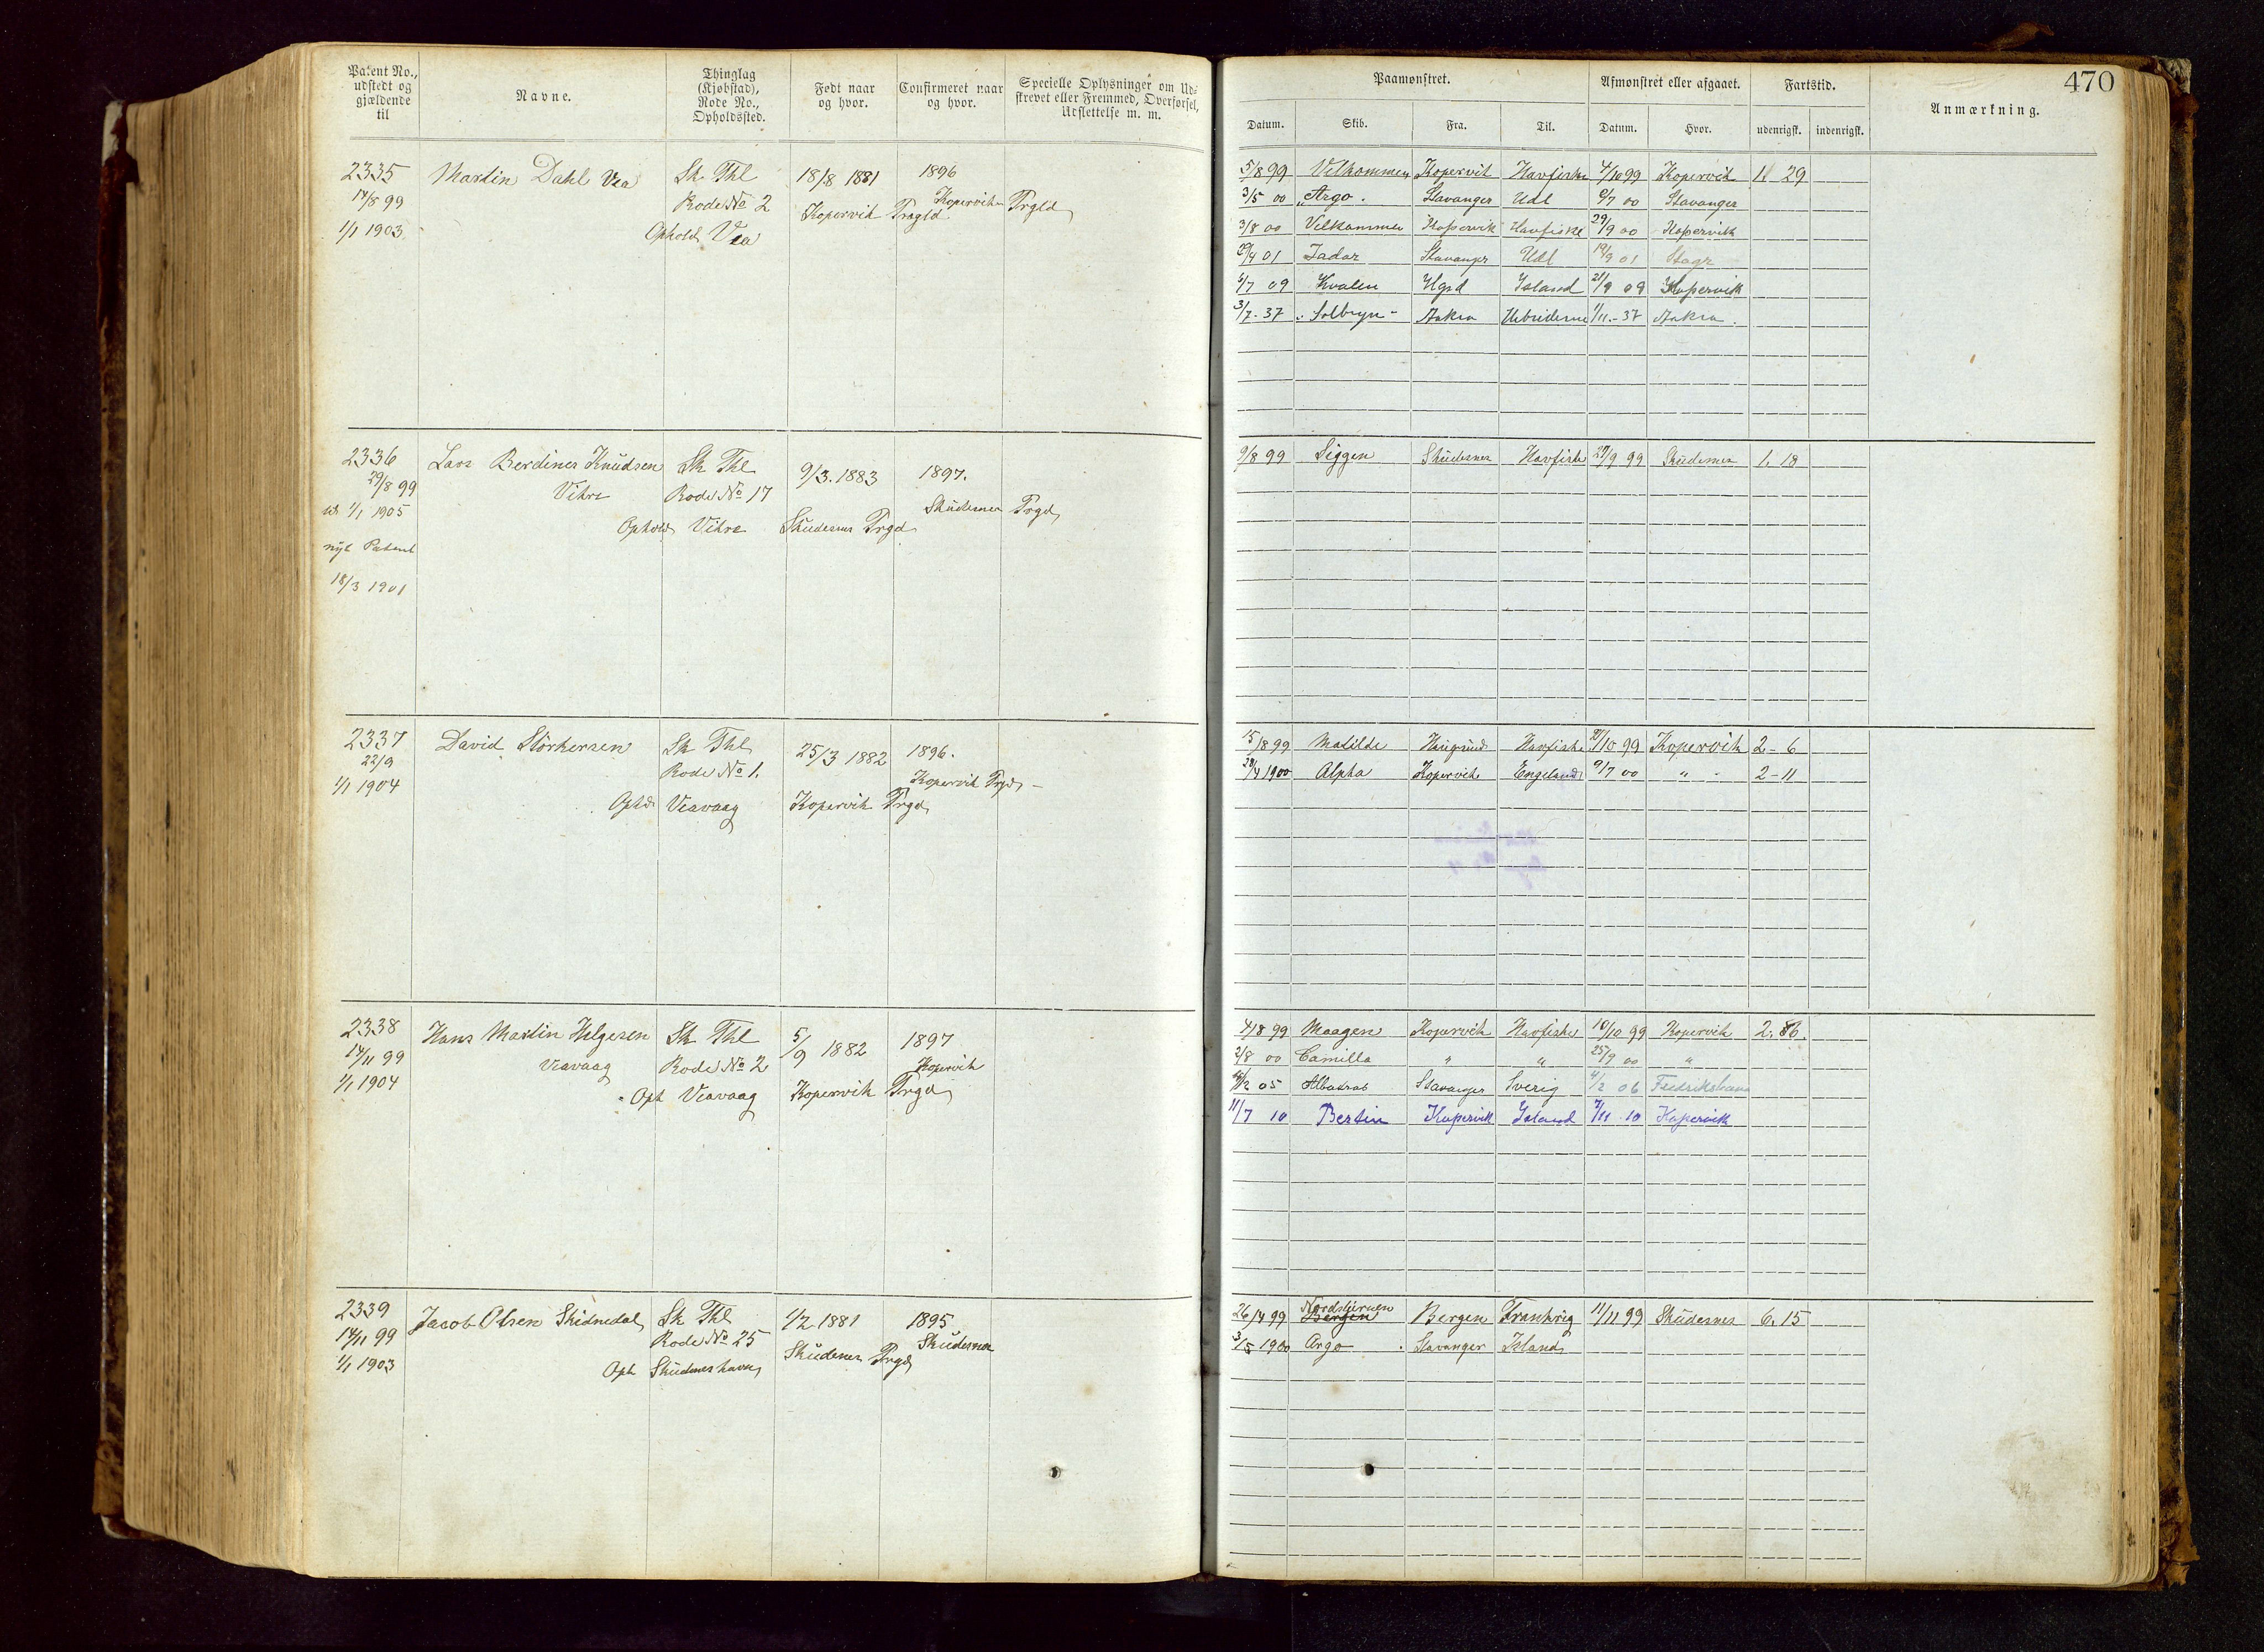 Patent No., udstedt og gjældende til
Navne.
Thinglag (Kjøbstad), Rode No., Opholdssted.
Født naar og hvor.
Confirmeret naar og hvor.
Specielle Oplysninger om Udskrevet eller Fremmed, Overførsel, Udslettelse m. m.
Paamønstret.
Afmønstret eller afgaaet.
Fartstid.
Anmærkning.
470
Datum. Skib. Fra. Til. Datum. Hvor. udenrigsk. indenrigsk.
2335 Martin Dahl Vea Sk. Thl 18/8 1881 1896
14/8 99 Rode No 2 Kopervik Prgld. Kopervik Prgld
1/1 1903 Ophold Vea
5/8 99 Velkommen Kopervik Havfiske 4/10 99 Kopervik 1 29
3/5 00 "Argo. Stavanger Udl 6/7 00 Stavanger
3/8 00 Velkommen Kopervik Havfiske 29/9 00 Kopervik
29/4 01 Jadar Stavanger Udl 19/9 01 Stagr
6/7 09 Kvalen Hgsd Island 21/9 09 Kopervik
3/7-37 "Solbryn" Aakra Hebriderne 1/11-37 Aakra.
2336 Lars Berdines Knudsen Sk Thl 9/3.1883 1897.
29/8 99 Vihre Rode No 17 Skudesnes Prgd
1/1 1905 Ophold Vihre Skudesnes Prgd
nyt Patent
18/3 1901
9/8 99 Siggen Skudesnes Havfiske 27/9 99 Skudesnes 1. 18
2337 David Störkersen Sk Thl 25/3 1882 1896.
22/9 Rode No 1. Kopervik Prgd
1/1 1904 Ophd Veavaag Kopervik Prgd
15/8 99 Matilde Havfiske 21/10 99 Kopervik 2-6
28/4 1900 Alpha Kopervik England 9/7 00 " - 2-11
2338 Hans Martin Helgesen Sk Thl 5/9 1882 1897
14/11 99 Veavaag Rode No 2 Kopervik
1/1 1904 Oph Veavaag Kopervik Prgd
4/8 99 Maagen Kopervik Havfiske 10/10 99 Kopervik 2. 86.
2/8 00 Camilla " " 25/9 00 "
05 Albatros Stavanger Sverig 4/2 06 Fredrikshavn
11/7 10 Bertin Kopervik Island 7/11 10 Kopervik
2339 Jacob Olsen Skidnedal Sk Thl 1/2.1881 1895
14/11 99 Rode No 25 Skudesnes Prgd Skudesnes
1/1 1903 Oph Skudesneshavn
26/4 99 Nordstjernen Bergen Bergen Frankrig 11/11 99 Skudesnes 6. 15
3/5 1900 Argo Stavanger Island